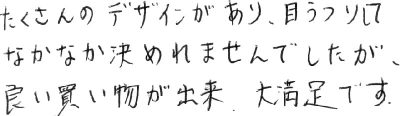 たくさんのデザインがあり、目うつりして
なかなか決めれませんでしたが、
良い買い物が出来、大満足です。